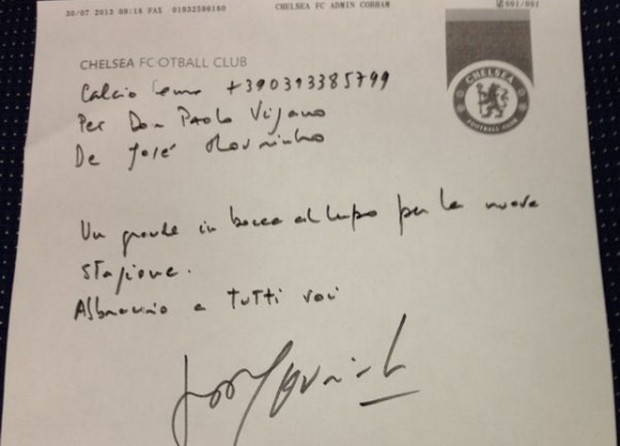 30/07 2013 09:18 FAX 01932596180 CHELSEA FC ADMIN COBHAM 001/001
CHELSEA FOOTBALL CLUB
CHELSEA
FOOTBALL CLUB
Calcio +390313385799
Per Don Paolo Vigano
De José Mourinho
Un grande in bocca al lupo per la nuova
stagione.
Abbraccio a tutti voi